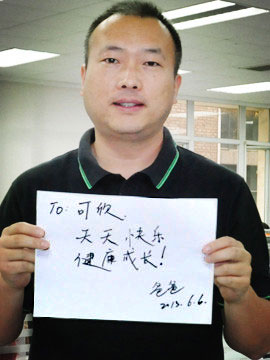 To: 可欣
天天快乐
健康成长!
爸爸
2013.6.6.